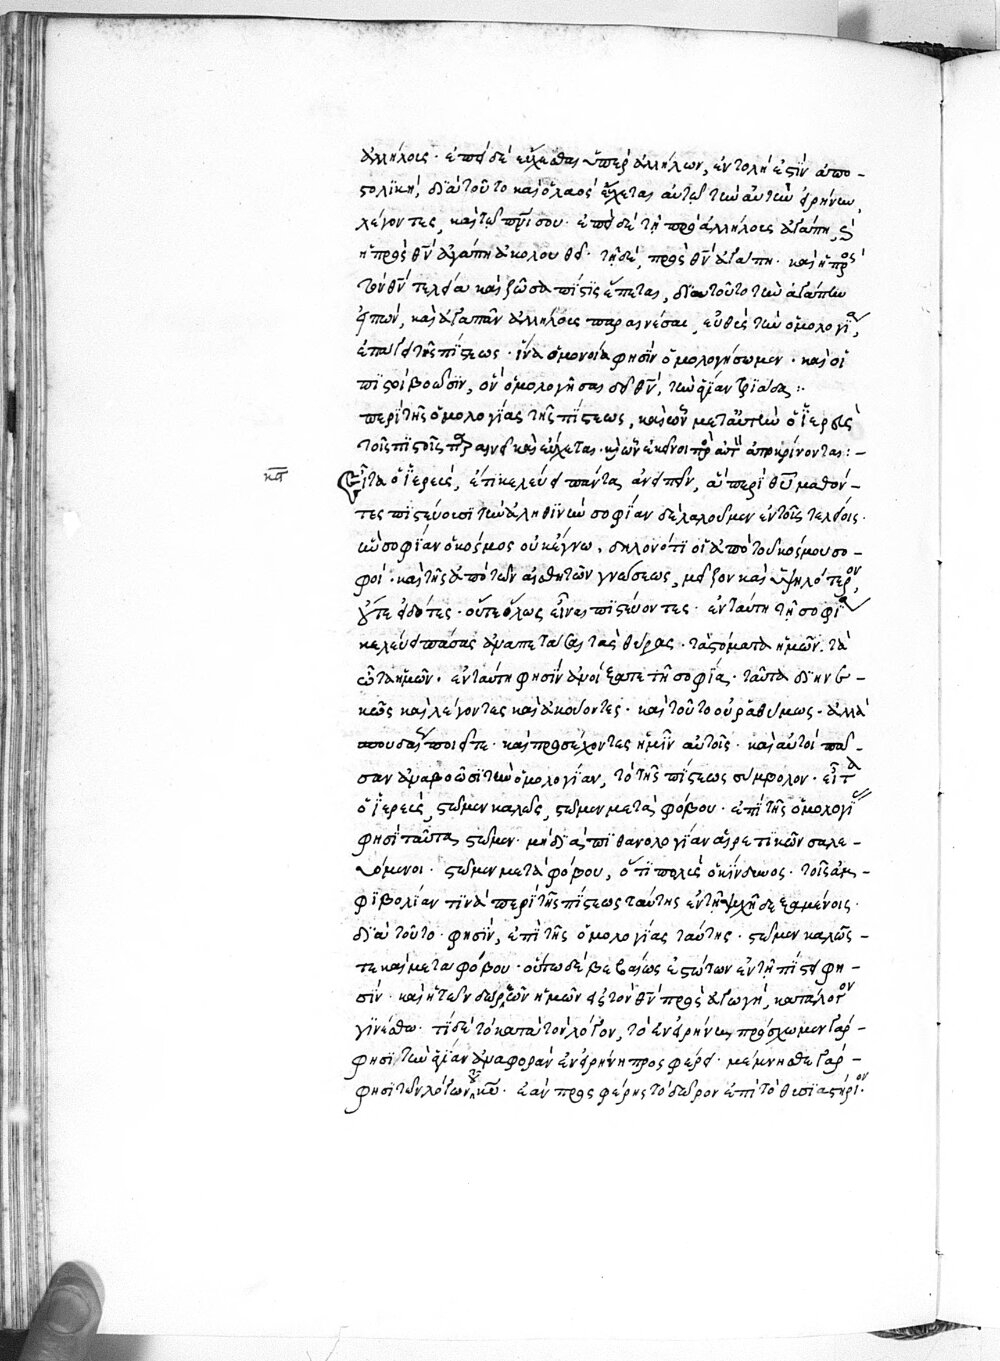 ἀλλήλοις· ἐπεὶ δὲ εὔχεσθαι ὑπὲρ ἀλλήλων, ἐντολή ἐστιν ἀπο-
στολικὴ, διὰ τοῦτο καὶ ὁ λαὸς εὔχεται αὐτῷ τὴν αὐτὴν εἰρήνην
λέγοντες, καὶ τῷ πνι σου· ἐπεὶ δὲ τῇ πρὸς ἀλλήλους ἀγάπῃ,
ἡ πρὸς θν ἀγάπη ἀκολουθεῖ· τῇ δὲ πρὸς θν ἀγάπῃ· καὶ ἡ πρὸς
τὸν θν τελεία καὶ ζῶσα πίστις ἕπεται, διὰ τοῦτο τὴν ἀγάπην
εἰπὼν, καὶ ἀγαπᾶν ἀλλήλους παραινέσας, εὐθὺς τὴν ὁμολογίαν
ἐπάγει τῆς πίστεως· ἵνα ὁμονοίᾳ φησὶν ὁμολογήσωμεν· καὶ οἱ
πιστοὶ βοῶσιν, οὗ ὁμολογήσας θν, τὴν ἁγίαν τριάδα:·
περὶ τῆς ὁμολογίας τῆς πίστεως, καὶ ὧν μετ' αὐτὴν ὁ ἱερεὺς
τοῖς πιστοῖς παραινεῖ καὶ εὔχεται· κἀκεῖνοι πρὸς αὐτὸν ἀποκρίνονται:-
Εἶτα ὁ ἱερεὺς, ἐπικελεύει πάντα ἀνειπεῖν, ἃ περὶ θυ μαθόν-
τες πιστεύουσι τὴν ἀληθινὴν σοφίαν δὲ λαλοῦμεν ἐν τοῖς τελείοις·
ἣν σοφίαν ὁ κόσμος οὐκ ἔγνω, δηλονότι οἱ ἀπὸ τοῦ κόσμου σο-
φοί· καὶ τῆς ἀπὸ τῶν αἰσθητῶν γνώσεως, μεῖζον καὶ ὑψηλότερον
οὔτε εἰδότες· οὔτε ὅλως εἶναι πιστεύοντες· ἐν ταύτῃ τῇ σοφίᾳ
κελεύει πάσας ἀναπετάσαι τὰς θύρας· τὰ στόματα ἡμῶν· τὰ
ὦτα ἡμῶν· ἐν ταύτῃ φησὶν ἀνοίξατε τῇ σοφίᾳ· ταῦτα διηνε-
κῶς καὶ λέγοντες καὶ ἀκούοντες· καὶ τοῦτο οὐ ῥαθύμως· ἀλλὰ
σπουδαίως ποιεῖτε· καὶ προσέχοντες ὑμῖν αὐτοῖς· καὶ αὐτοὶ πᾶ-
σαν ἀναβοῶσι τὴν ὁμολογίαν, τὸ τῆς πίστεως σύμβολον· εἶτα
ὁ ἱερεὺς, στῶμεν καλῶς, στῶμεν μετὰ φόβου· ἐπὶ τῆς ὁμολογίας
φησὶ ταύτης στῶμεν· μὴ διὰ πιθανολογίαν αἱρετικῶν σαλευ-
όμενοι· στῶμεν μετὰ φόβου, ὅτι πολὺς ὁ κίνδυνος· τοῖς ἀμ-
φιβολίαν τινὰ περὶ τῆς πίστεως ταύτης ἐν τῇ ψυχῇ δεξαμένοις·
διὰ τοῦτο· φησὶν, ἐπὶ τῆς ὁμολογίας ταύτης· στῶμεν καλῶς-
τε καὶ μετὰ φόβου· οὕτω δὲ βεβαίως ἑστώτων ἐν τῇ πίστει φη-
σίν· καὶ ἡ τῶν δώρων ἡμῶν εἰς τὸν θν προσαγωγὴ, κατὰ λόγον
γινέσθω· τί δὲ τὸ κατὰ τὸν λόγον, τὸ ἐν εἰρήνῃ, πρόσχωμεν γάρ-
φησι τὴν ἁγίαν ἀναφορὰν ἐν εἰρήνῃ προσφέρειν· μέμνησθε γάρ-
φησι τῶν λόγων τοῦ κυ· ἐὰν προσφέρῃς τὸ δῶρον ἐπὶ τὸ θυσιαστήριον·